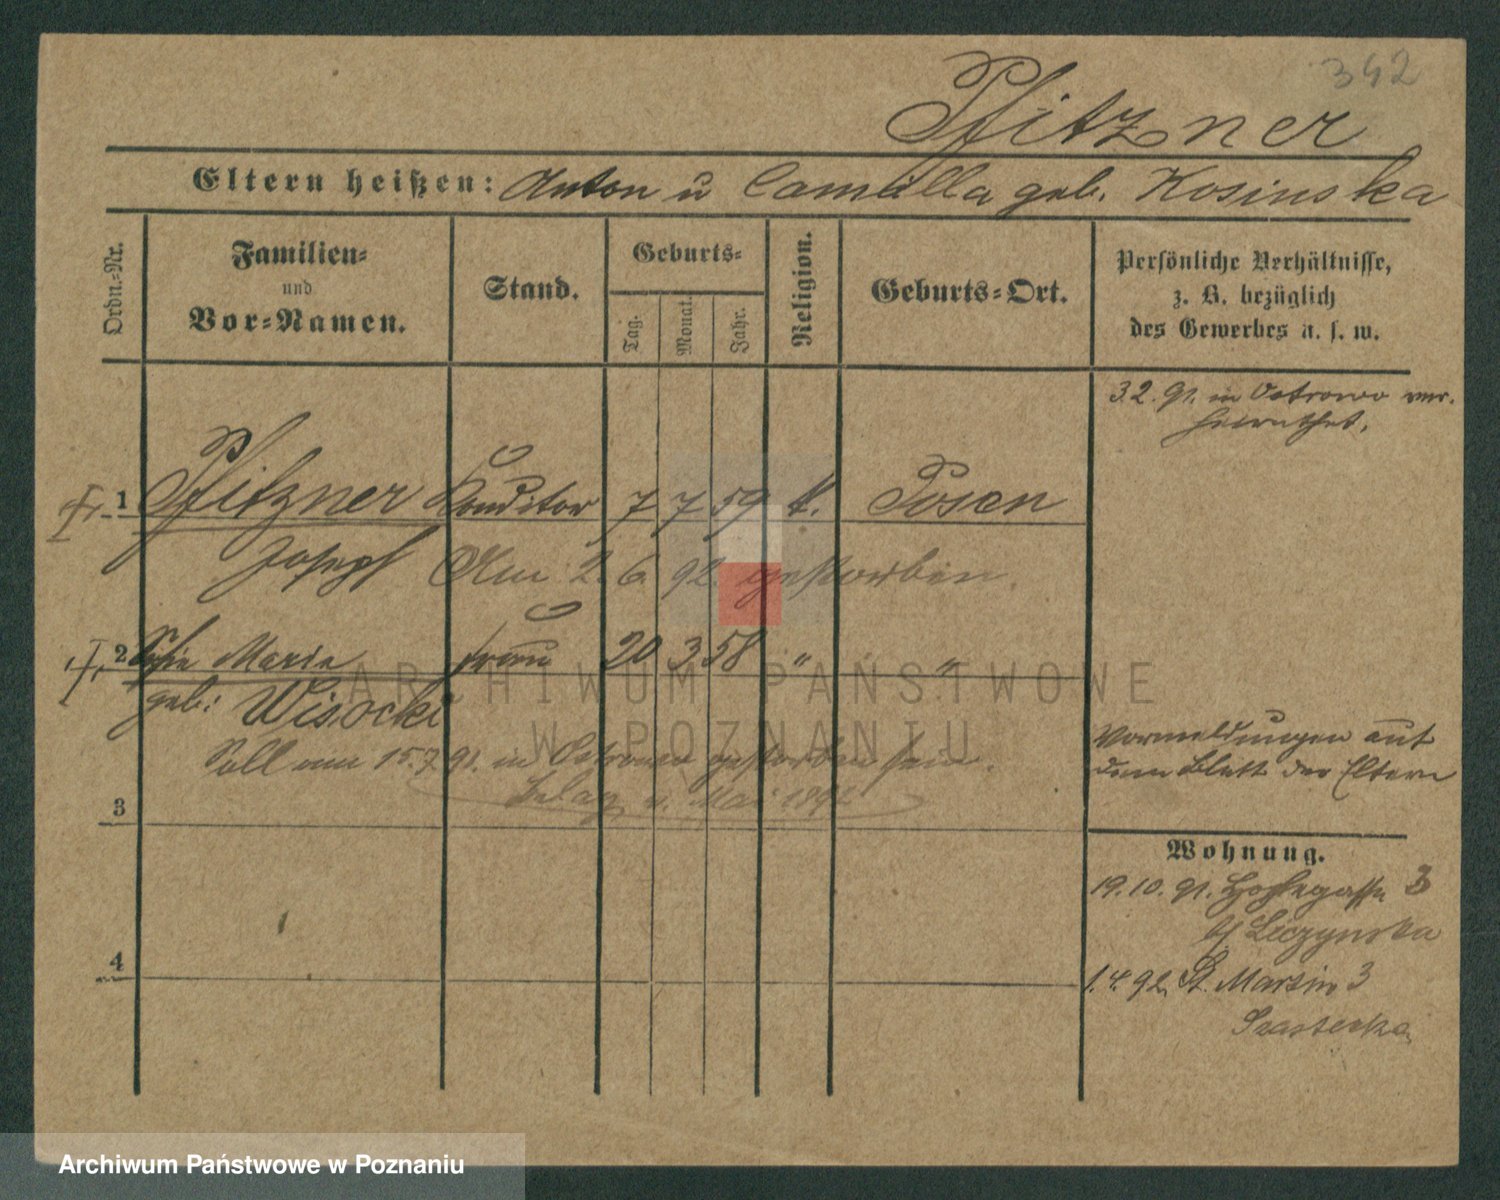 342
Pfitzner
Eltern heißen: Anton u Camilla geb. Kosinska
Ordn.-Nr.
Familien-
und
Vor-Namen.
Stand.
Geburts-
Tag.
Monat.
Jahr.
Religion.
Geburts-Ort.
Persönliche Verhältnisse,
z. B. bezüglich
des Gewerbes u. s. w.
3.2.91. in Ostrowo ver-
heirathet.
1 Pfitzner Konditor 7 7 59 k. Posen
Joseph Am 2. 6. 92. gestorben.
2 Marie Frau 20 3 58 " "
geb: Wisocki
Soll am 15.7.91. in Ostrowo gestorben sein.
Mai 1892
Vormeldungen auf
dem Blatt der Eltern
3
Wohnung.
19.10.91. 3
b/ Leczynska
4
1.4.92. St. Martin 3
ARCHIWUM PAŃSTWOWE
W POZNANIU
Archiwum Państwowe w Poznaniu